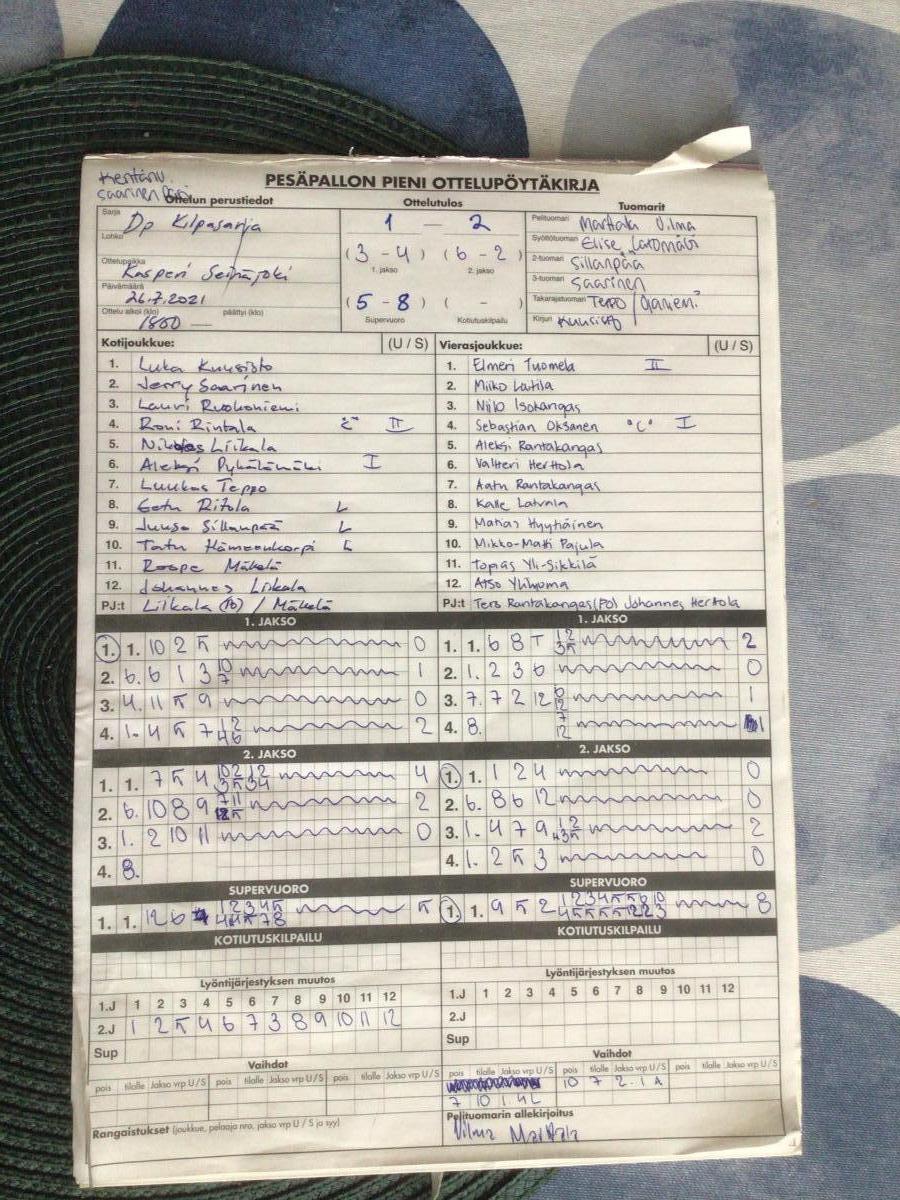 PESÄPALLON PIENI OTTELUPÖYTÄKIRJA
Ottelun perustiedot
Ottelutulos
Tuomarit
Sarja Dp Kilpasarja
Lohko
Ottelupaikka Kasperi Seinäjoki
Päivämäärä 26.7.2021
Ottelu alkoi (klo) 1800 päättyi (klo)
1 — 2
(3 - 4) (6 - 2)
1. jakso 2. jakso
(5 - 8) ( - )
Supervuoro Kotiutuskilpailu
Pelituomari Marttala Vilma
Syöttötuomari Elise Latomäki
2-tuomari Sillanpää
3-tuomari Saarinen
Takarajatuomari Teppo /
Kirjuri Kuusisto
Kotijoukkue: (U / S)
1. Luka Kuusisto
2. Jerry Saarinen
3. Lauri Ruokoniemi
4. Roni Rintala "C" II
5. Niklas Liikala
6. Aleksi Pykälämäki I
7. Luukas Teppo
8. Eetu Ritola L
9. Juuso Sillanpää L
10. Tatu Hämeenkorpi L
11. Roope Mäkelä
12. Johannes Liikala
PJ:t Liikala (Po) / Mäkelä
Vierasjoukkue: (U / S)
1. Elmeri Tuomela II
2. Miiko Latila
3. Niilo Isokangas
4. Sebastian Oksanen "C" I
5. Aleksi Rantakangas
6. Valtteri Herttola
7. Aatu Rantakangas
8. Kalle Latvala
9. Matias Hyytiäinen
10. Mikko-Matti Pajula
11. Topias Yli-Sikkilä
12. Atso Ylihuma
PJ:t Tero Rantakangas (PO) Johannes Hertola
1. JAKSO
1. 1. 10 2 5 0
2. 6. 6 1 3 10 7 1
3. 4. 11 5 9 0
4. 1. 4 5 7 12 46 2
1. JAKSO
1. 1. 6 8 T 12 35 2
2. 1. 2 3 6 0
3. 7. 7 2 12 6 12 1
4. 8. 7 12 1
2. JAKSO
1. 1. 7 5 4 10 2 12 3 5 34 4
2. 6. 10 8 9 7 11 12 5 2
3. 1. 2 10 11 0
4. 8.
2. JAKSO
1. 1. 1 2 4 0
2. 6. 8 6 12 0
3. 1. 4 7 9 12 35 2
4. 1. 2 5 3 0
SUPERVUORO
1. 1. 12 6 12345 5
SUPERVUORO
1. 1. 9 5 2 8
KOTIUTUSKILPAILU
KOTIUTUSKILPAILU
Lyöntijärjestyksen muutos
1.J 1 2 3 4 5 6 7 8 9 10 11 12
2.J 1 2 5 4 6 7 3 8 9 10 11 12
Sup
Lyöntijärjestyksen muutos
1.J 1 2 3 4 5 6 7 8 9 10 11 12
2.J
Sup
Vaihdot
pois tilalle Jakso vrp U / S pois tilalle Jakso vrp U / S pois tilalle Jakso vrp U / S
Vaihdot
pois tilalle Jakso vrp U / S pois tilalle Jakso vrp U / S pois tilalle Jakso vrp U / S
10 7 2. 1 A
7 10 1. 4 L
Rangaistukset (joukkue, pelaaja nro, jakso vrp U / S ja syy)
Pelituomarin allekirjoitus
Vilma Marttala